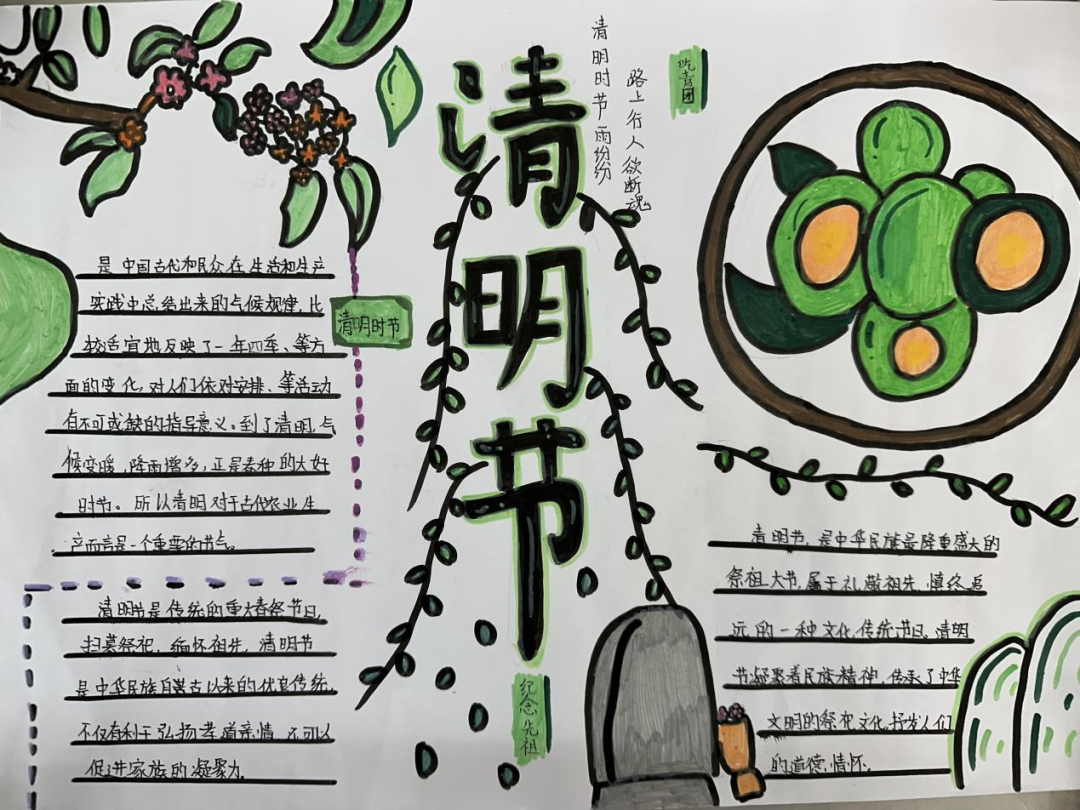 清明节
清明时节雨纷纷
路上行人欲断魂
吃青团
清明时节
是中国古代和民众在生活和生产
实践中总结出来的气候规律,比
较适宜地反映了一年四季、等方
面的变化,对人们依对安排、等活动
有不可或缺的指导意义。到了清明,气
候变暖,降雨增多,正是春种的大好
时节。所以清明对于古代农业生
产而言是一个重要的节气。
清明节是传统的重大春祭节日,
扫墓祭祀、缅怀祖先,清明节
是中华民族自古以来的优良传统,
不仅有利于弘扬孝道亲情、还可以
促进家族的凝聚力,
纪念先祖
清明节,是中华民族最隆重盛大的
祭祖大节,属于礼敬祖先、慎终追
远的一种文化传统节日,清明
节凝聚着民族精神,传承了中华
文明的祭祀文化,抒发人们
的道德,情怀,